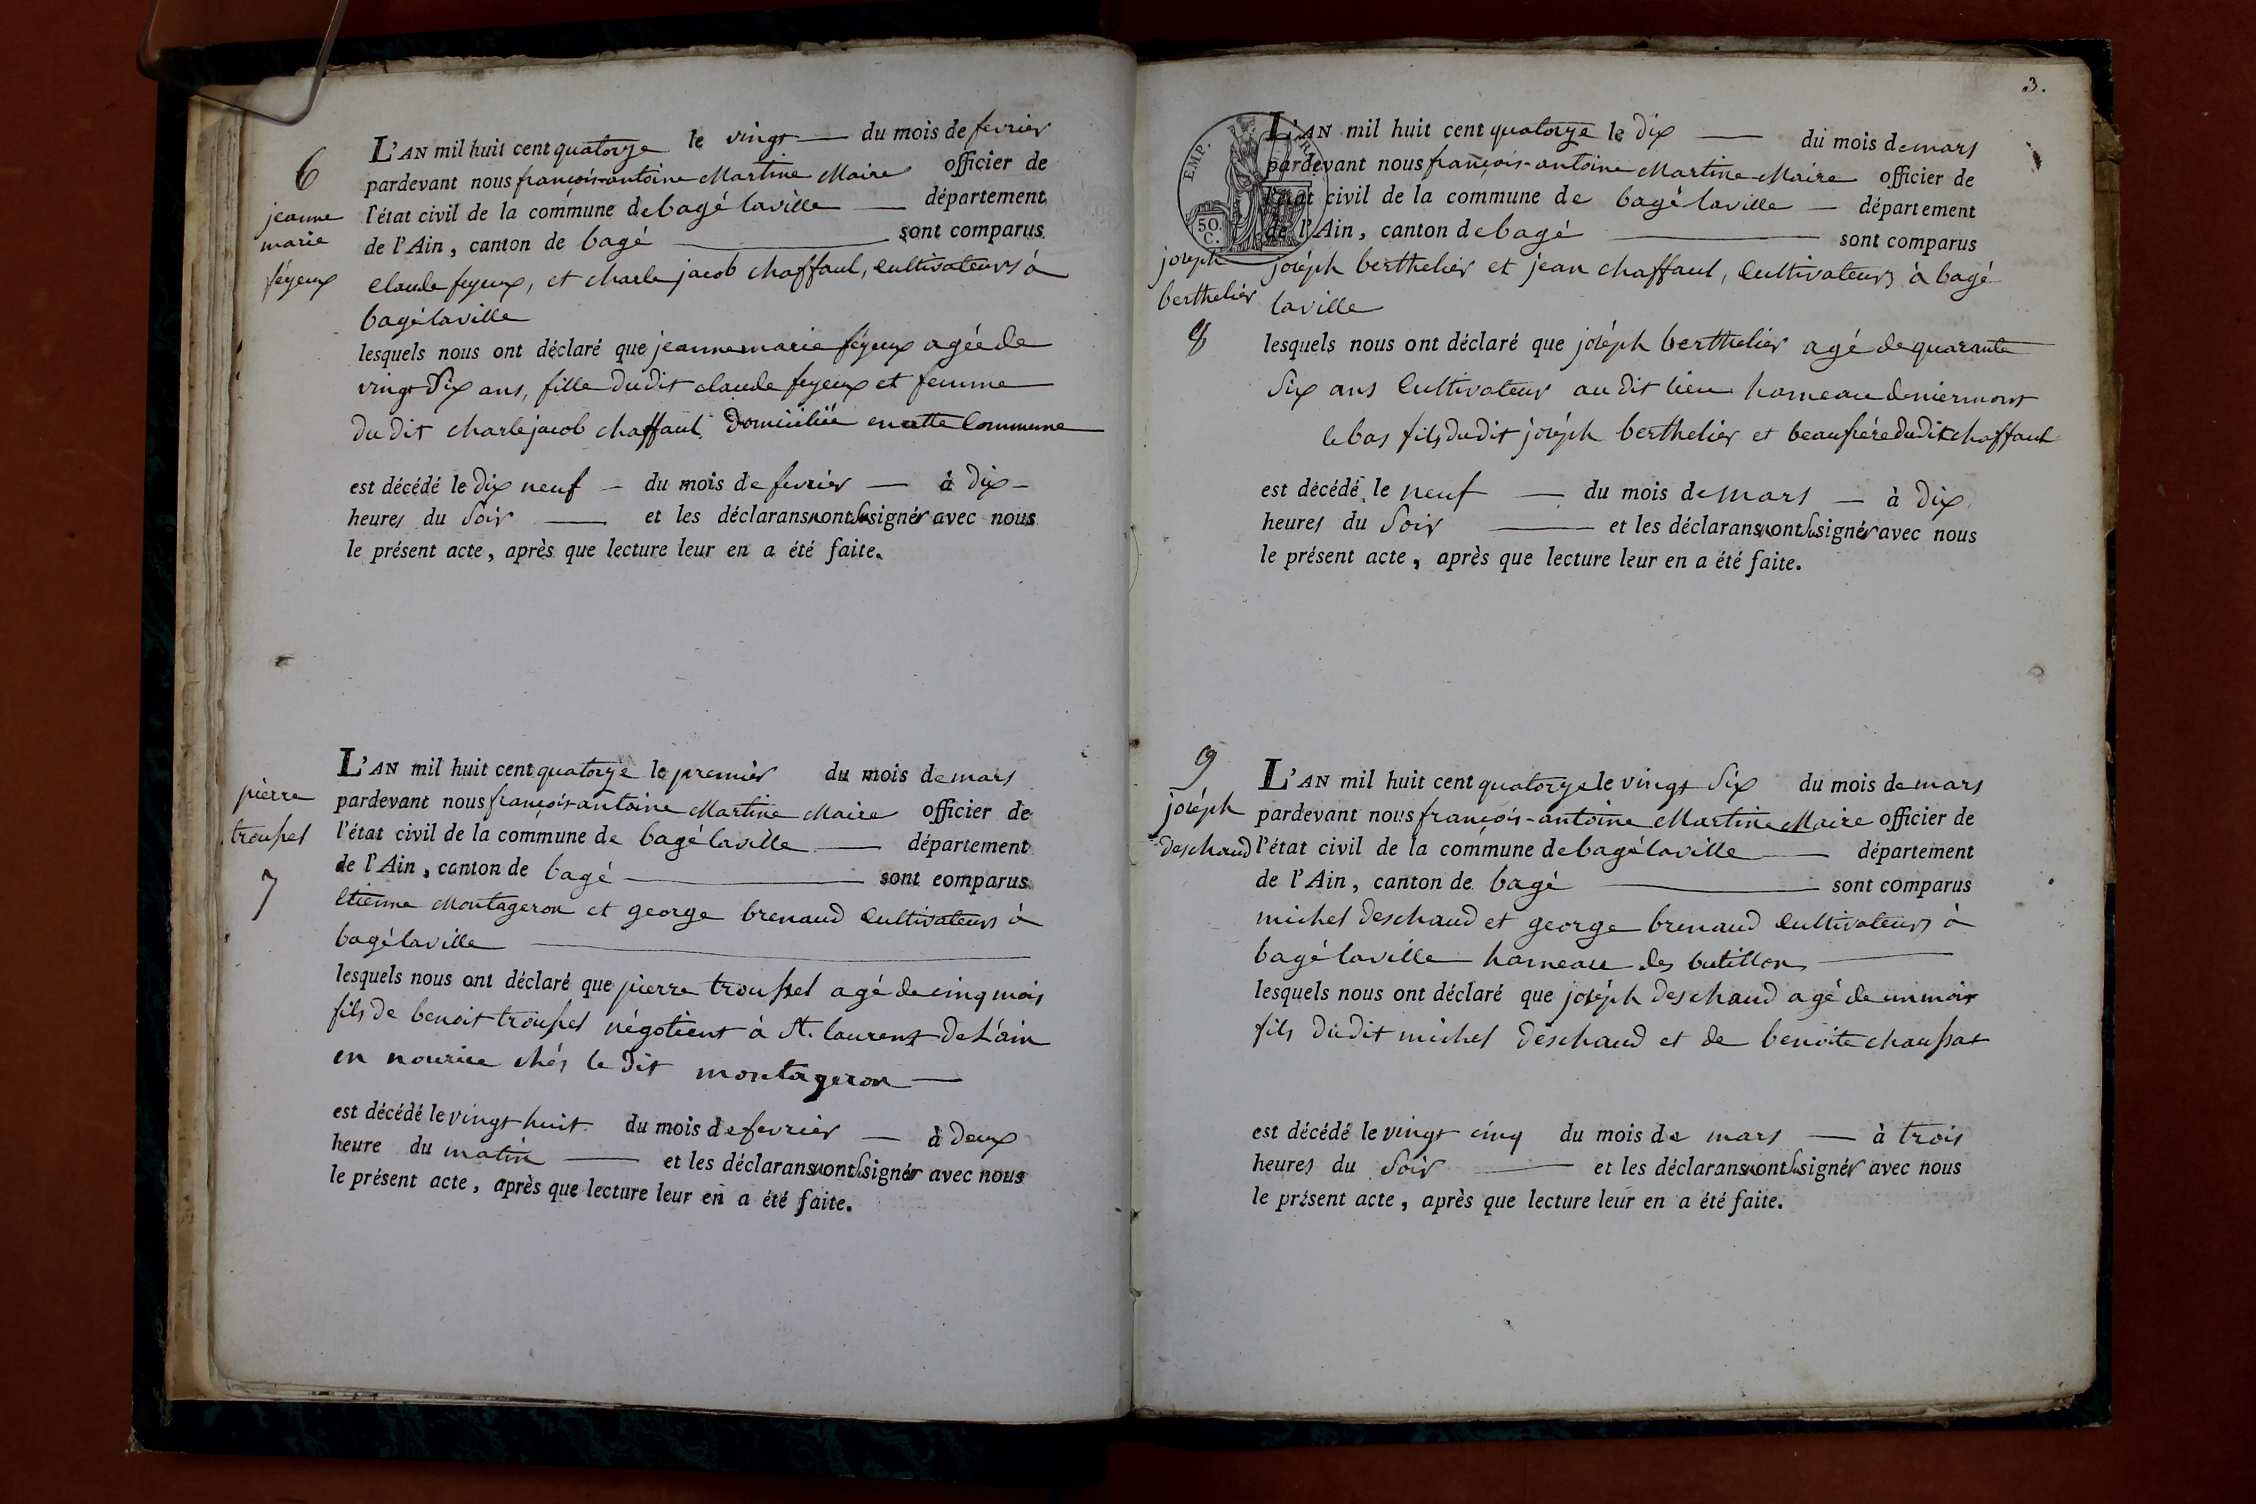 6
jeanne
marie
féyeux
L'AN mil huit cent quatorze le vingt du mois de fevrier
pardevant nous françois-antoine Martine Maire officier de
l'état civil de la commune de bagé laville département
de l'Ain, canton de bagé sont comparus
claude feyeux, et charle jacob chaffaul, cultivateurs à
bagé laville
lesquels nous ont déclaré que jeanne marie féyeux agée de
vingt six ans, fille dudit claude feyeux et femme
du dit charle jacob chaffaul, domiciliée en cette commune
est décédé le dix neuf du mois de fevrier à dix
heures du soir et les déclarans n'ont su signer avec nous
le présent acte, après que lecture leur en a été faite.
pierre
troussel
7
L'AN mil huit cent quatorze le premier du mois de mars
pardevant nous françois-antoine Martine Maire officier de
l'état civil de la commune de bagé laville département
de l'Ain, canton de bagé sont comparus
etienne Montageron et george brenaud cultivateurs à
bagé laville
lesquels nous ont déclaré que pierre troussel agé de cinq mois
fils de benoit troussel négotient à St. laurent de L'ain
en nourice chés le dit montageron
est décédé le vingt huit du mois de fevrier à deux
heure du matin et les déclarans n'ont su signer avec nous
le présent acte, après que lecture leur en a été faite.
3.
EMP.
50
C.
joseph
berthelier
8
L'AN mil huit cent quatorze le dix du mois de mars
pardevant nous françois-antoine Martine Maire officier de
l'état civil de la commune de bagé laville département
de l'Ain, canton de bagé sont comparus
joséph berthelier et jean chaffaul, cultivateurs à bagé
laville
lesquels nous ont déclaré que joséph berthelier agé de quarante
six ans cultivateur au dit lieu hameau de niermont
le bas fils dudit joséph berthelier et beaufrére dudit chaffaul
est décédé le neuf du mois de mars à dix
heures du soir et les déclarans n'ont su signer avec nous
le présent acte, après que lecture leur en a été faite.
9
joséph
deschaud
L'AN mil huit cent quatorze le vingt six du mois de mars
pardevant nous françois-antoine Martine Maire officier de
l'état civil de la commune de bagé laville département
de l'Ain, canton de bagé sont comparus
michel deschaud et george brenaud cultivateurs à
bagé laville hameau des butillons
lesquels nous ont déclaré que joséph deschaud agé de un mois
fils du dit michel deschaud et de benoite chaussat
est décédé le vingt cinq du mois de mars à trois
heures du soir et les déclarans n'ont su signer avec nous
le présent acte, après que lecture leur en a été faite.